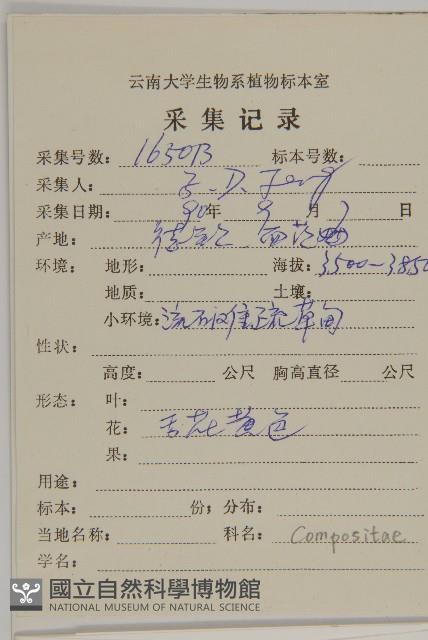 云南大学生物系植物标本室
采集记录
采集号数: 16501B 标本号数:
采集人:
采集日期: 90年 9月 7日
产地: 德钦
环境: 地形: 海拔: 3500-3850
地质: 土壤:
小环境: 流石滩 草甸
性状:
高度: 公尺 胸高直径 公尺
形态: 叶:
花: 舌花黄色
果:
用途:
标本: 份; 分布:
当地名称: 科名: Compositae
学名:
國立自然科學博物館
NATIONAL MUSEUM OF NATURAL SCIENCE